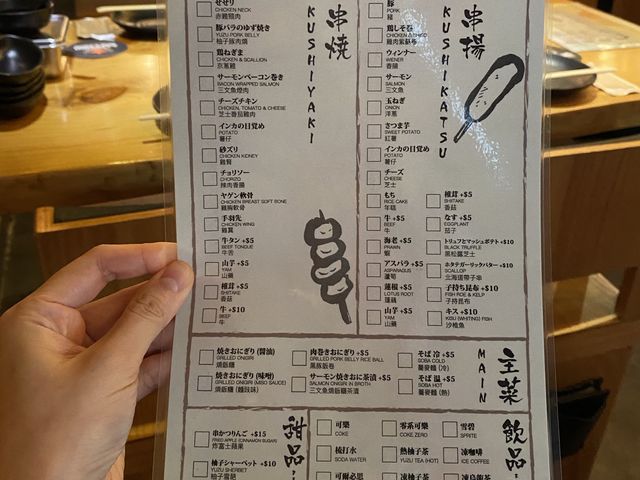 せせり
CHICKEN NECK
赤雞頸肉
豚バラのゆず焼き
YUZU PORK BELLY
柚子豚肉燒
鶏ねぎま
CHICKEN & SCALLION
京葱雞
サーモンベーコン巻き
BACON WRAPPED SALMON
三文魚煙肉
チーズチキン
CHICKEN, TOMATO & CHEESE
芝士番茄雞肉
インカの目覚め
POTATO
薯仔
砂ズリ
CHICKEN KIDNEY
雞腎
チョリソー
CHORIZO
辣肉香腸
ヤゲン軟骨
CHICKEN BREAST SOFT BONE
雞胸軟骨
手羽先
CHICKEN WING
雞翼
牛タン +$5
BEEF TONGUE
牛舌
山芋 +$5
YAM
山藥
椎茸 +$5
SHIITAKE
香菇
牛 +$10
BEEF
牛
串焼
KUSHIYAKI
豚
PORK
豬
鶏しそ巻
CHICKEN & SHISO
雞肉紫蘇卷
ウィンナー
WIENER
香腸
サーモン
SALMON
三文魚
玉ねぎ
ONION
洋蔥
さつま芋
SWEET POTATO
紅薯
インカの目覚め
POTATO
薯仔
チーズ
CHEESE
芝士
もち
RICE CAKE
年糕
牛 +$5
BEEF
牛
海老 +$5
PRAWN
蝦
アスパラ +$5
ASPARAGUS
蘆筍
蓮根 +$5
LOTUS ROOT
蓮藕
山芋 +$5
YAM
山藥
串揚
KUSHIKATSU
椎茸 +$5
SHIITAKE
香菇
なす +$5
EGGPLANT
茄子
トリュフとマッシュポテト +$10
BLACK TRUFFLE
黑松露芝士
ホタテガーリックバター +$10
SCALLOP
北海道帶子串
子持ち昆布 +$10
FISH ROE & KELP
子持昆布
キス +$10
KISU (WHITING) FISH
沙鮻魚
焼きおにぎり (醤油)
GRILLED ONIGIRI
燒飯糰
焼きおにぎり (味噌)
GRILLED ONIGIRI (MISO SAUCE)
燒飯糰 (麵豉味)
肉巻きおにぎり +$5
GRILLED PORK BELLY RICE BALL
黑豚飯卷
サーモン焼きおにぎり茶漬 +$5
SALMON ONIGIRI IN BROTH
三文魚燒飯糰茶漬
そば 冷 +$5
SOBA COLD
蕎麥麵 (冷)
そば 温 +$5
SOBA HOT
蕎麥麵 (熱)
主菜
MAIN
串かつりんご +$15
FRIED APPLE (CINNAMON SUGAR)
炸富士蘋果
柚子シャーベット +$10
YUZU SHERBET
柚子雪葩
甜品
可樂
COKE
梳打水
SODA WATER
可爾必思
零系可樂
COKE ZERO
熱柚子茶
YUZU TEA (HOT)
凍柚子茶
雪碧
SPRITE
凍咖啡
ICE COFFEE
凍烏龍茶
飲品